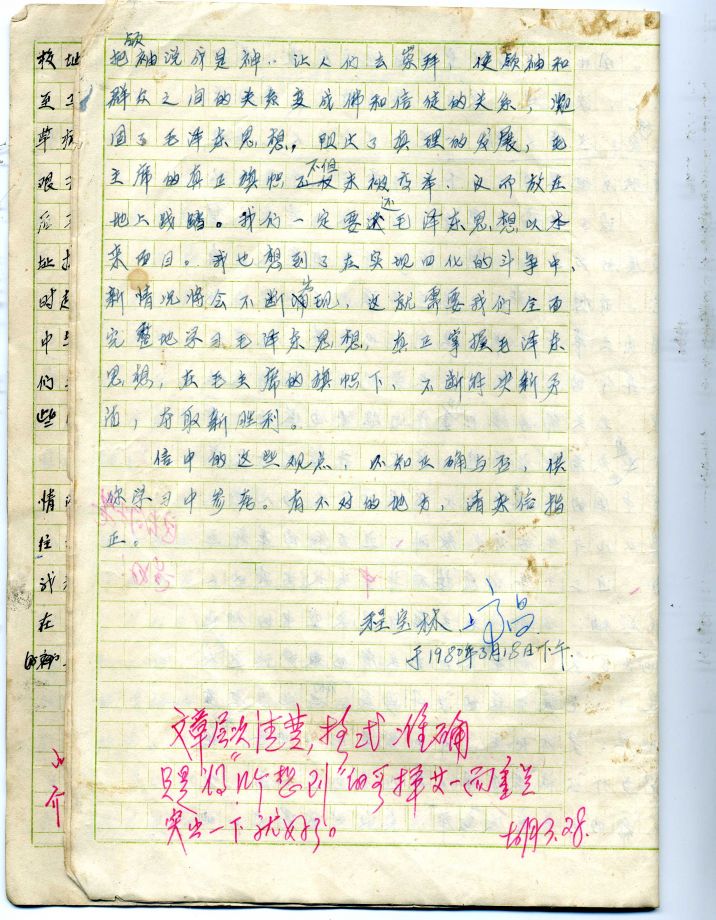 把领袖说成是神，让人们去崇拜，使领袖和
群众之间的关系变成佛和信徒的关系，凝
固了毛泽东思想，阻止了真理的发展，毛
主席的真正旗帜不但未被高举，反而放在
地上践踏。我们一定要还毛泽东思想以本
来面目。我也想到了在实现四化的斗争中，
新情况将会不断出现，这就需要我们全面
完整地学习毛泽东思想，真正掌握毛泽东
思想，在毛主席的旗帜下，不断解决新矛
盾，夺取新胜利。
信中的这些观点，不知正确与否，供
你学习中参考。有不对的地方，请来信指
正。
程宝林 上
于1980年3月18日下午
文章层次清楚，格式准确
只是将"所想到"的 择其一而重点
突出一下就好了。
胡 3.28.
校址
至
草
艰
后
址
时
中
们
些
情
往
我
在
的
介